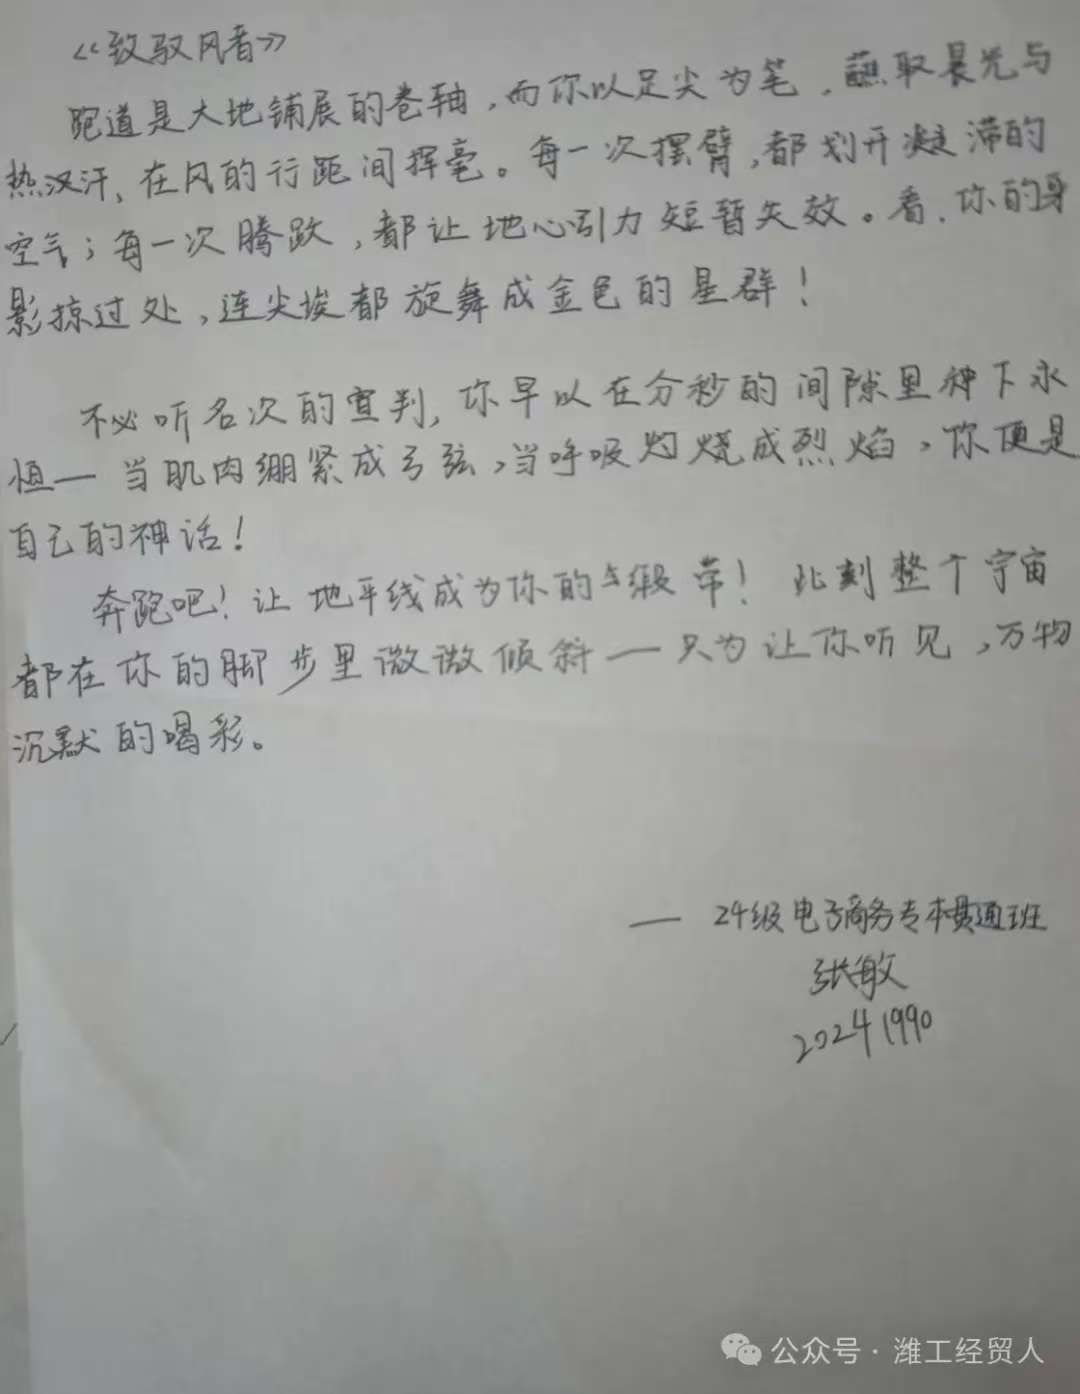 《致驭风者》
跑道是大地铺展的卷轴，而你以足尖为笔，蘸取晨光与
热汉汗、在风的行距间挥毫。每一次摆臂，都划开凝滞的
空气；每一次腾跃，都让地心引力短暂失效。看，你的身
影掠过处，连尖埃都旋舞成金色的星群！
不必听名次的宣判，你早以在分秒的间隙里种下永
恒一当肌肉绷紧成弓弦，当呼吸灼烧成烈焰，你便是
自己的神话！
奔跑吧！让地平线成为你的缎带！此刻整个宇宙
都在你的脚步里微微倾斜一只为让你听见，万物
沉默的喝彩。
— 24级电子商务专本贯通班
张敏
20241990
公众号·潍工经贸人